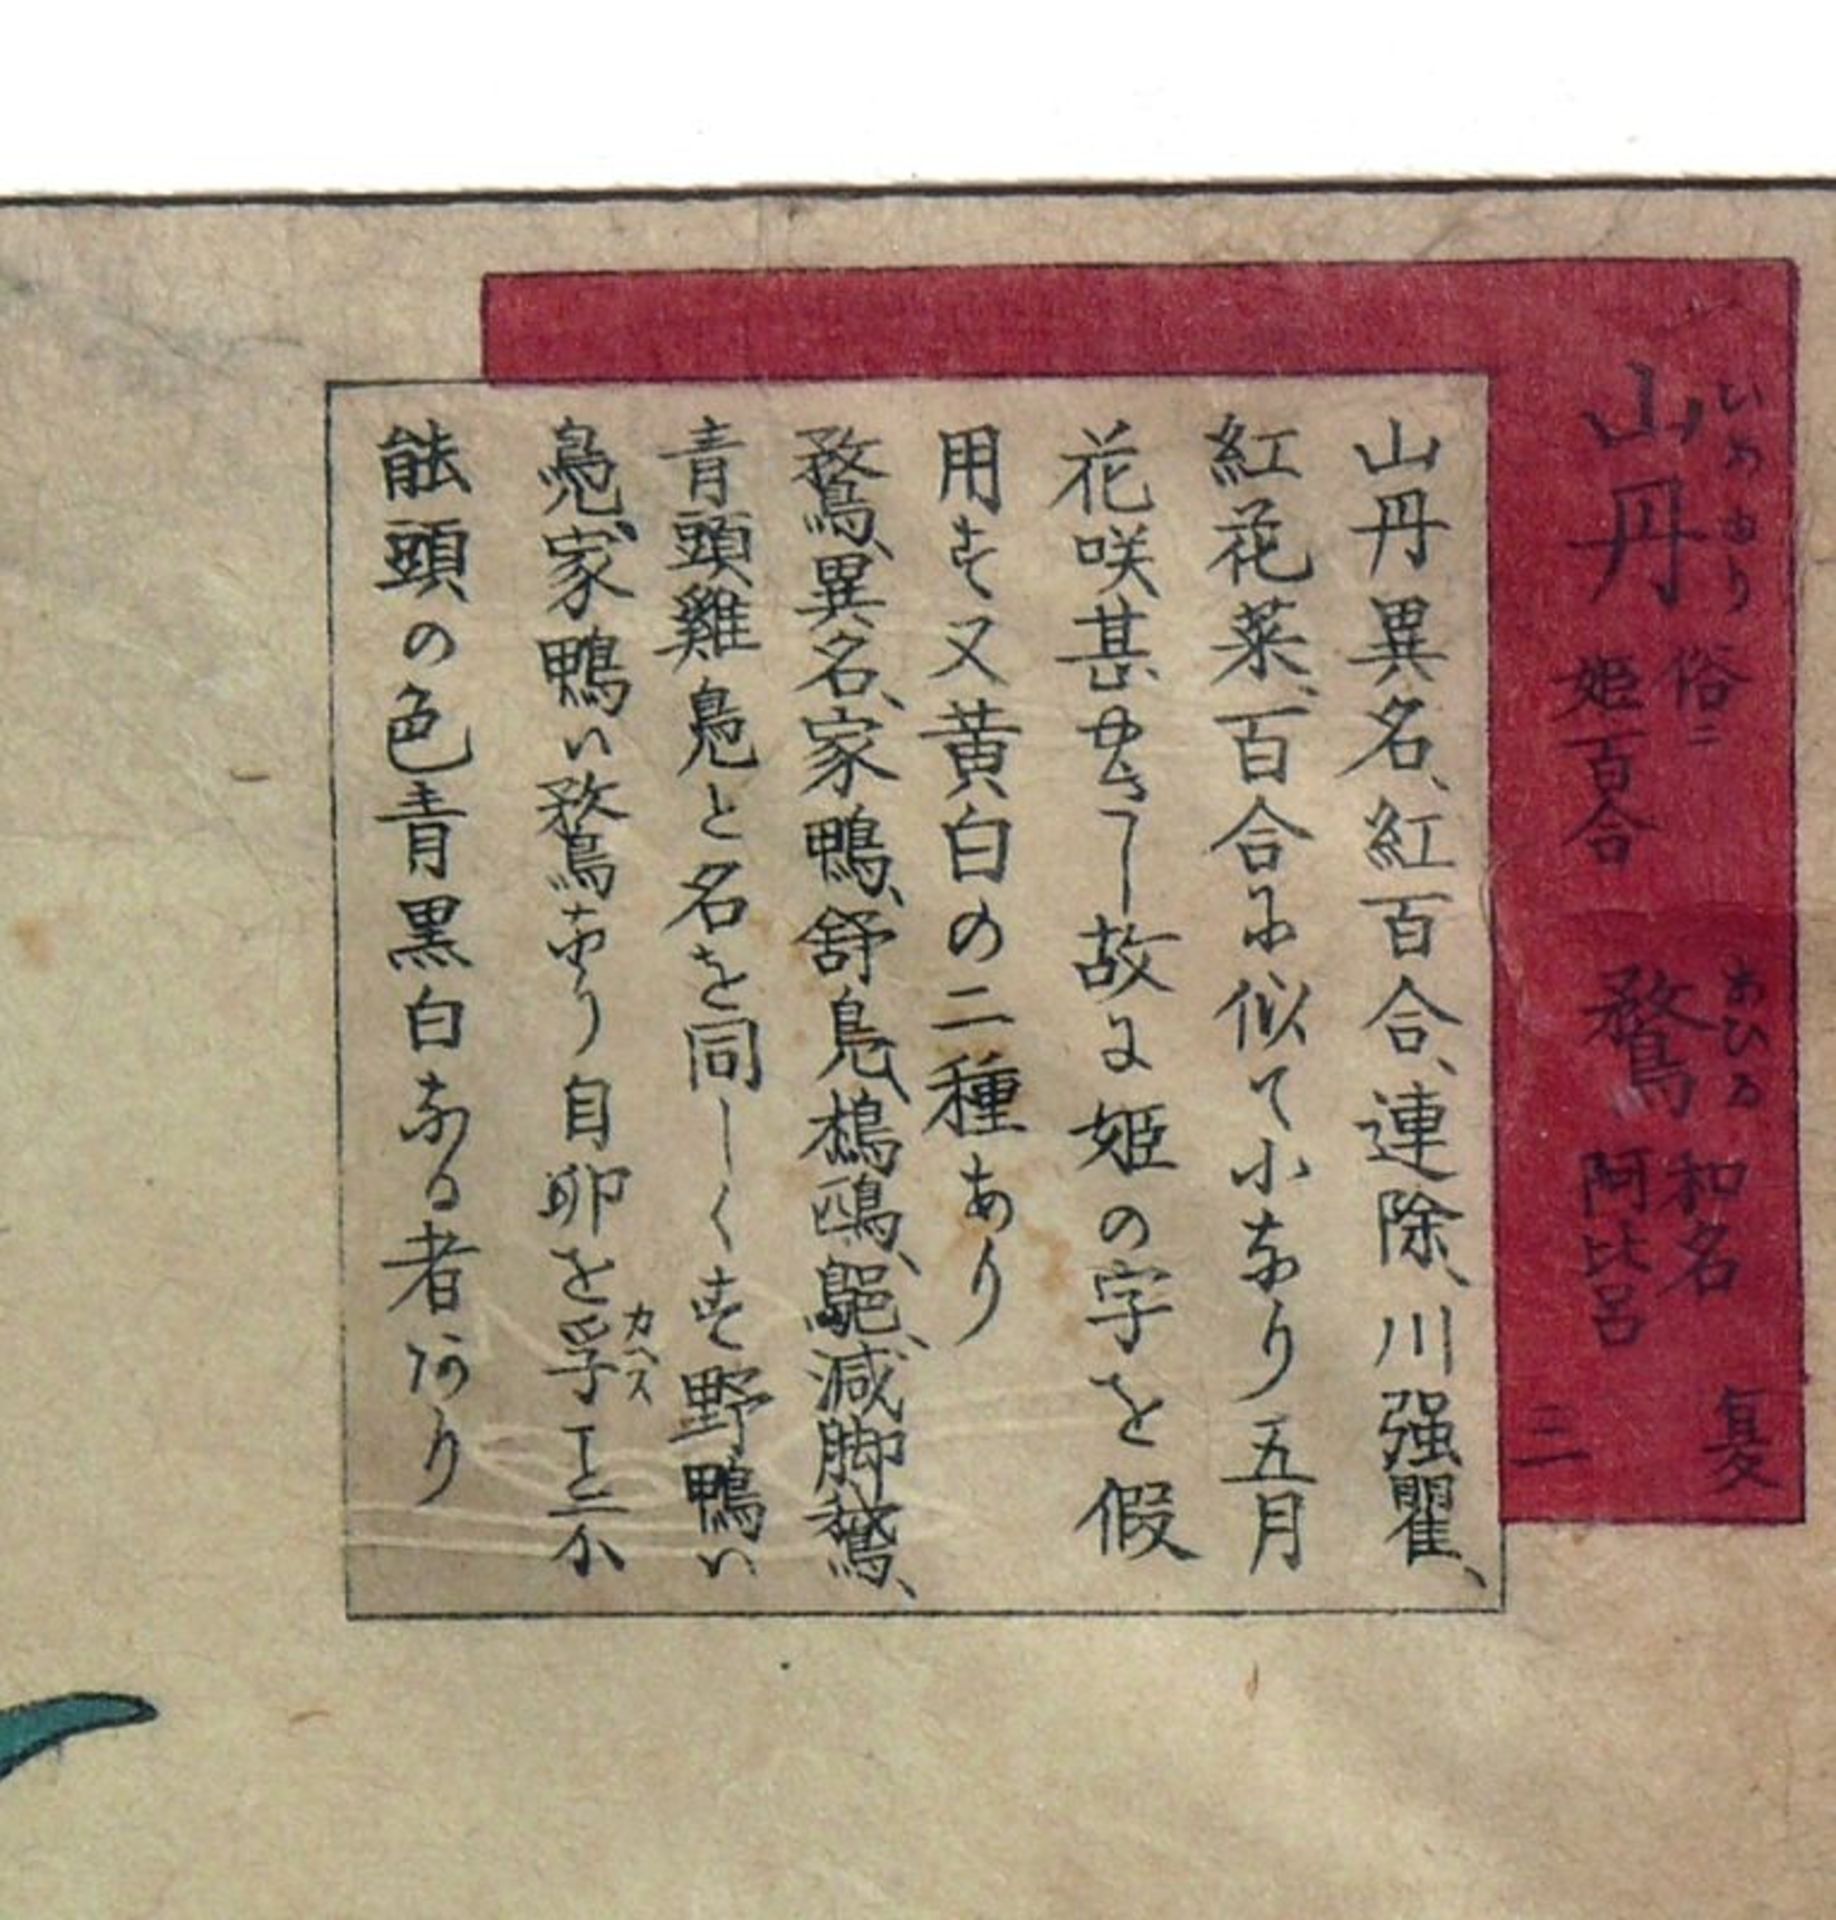 ひめゆり
山丹 俗ニ 姫百合
あひる
鶩 和名 阿比呂
夏 三
山丹異名、紅百合、連除、川强瞿、
紅花菜、百合に似て小なり五月
花咲甚やさし故に姫の字を假
用す又黄白の二種あり
鶩、異名、家鴨、舒鳧、減脚鵞、
青頭雞鳧と名を同しくす野鴨ハ
鳧、家鴨ハ鶩なり自卵を孚カヘスヿ不
能頭の色青黒白なる者あり